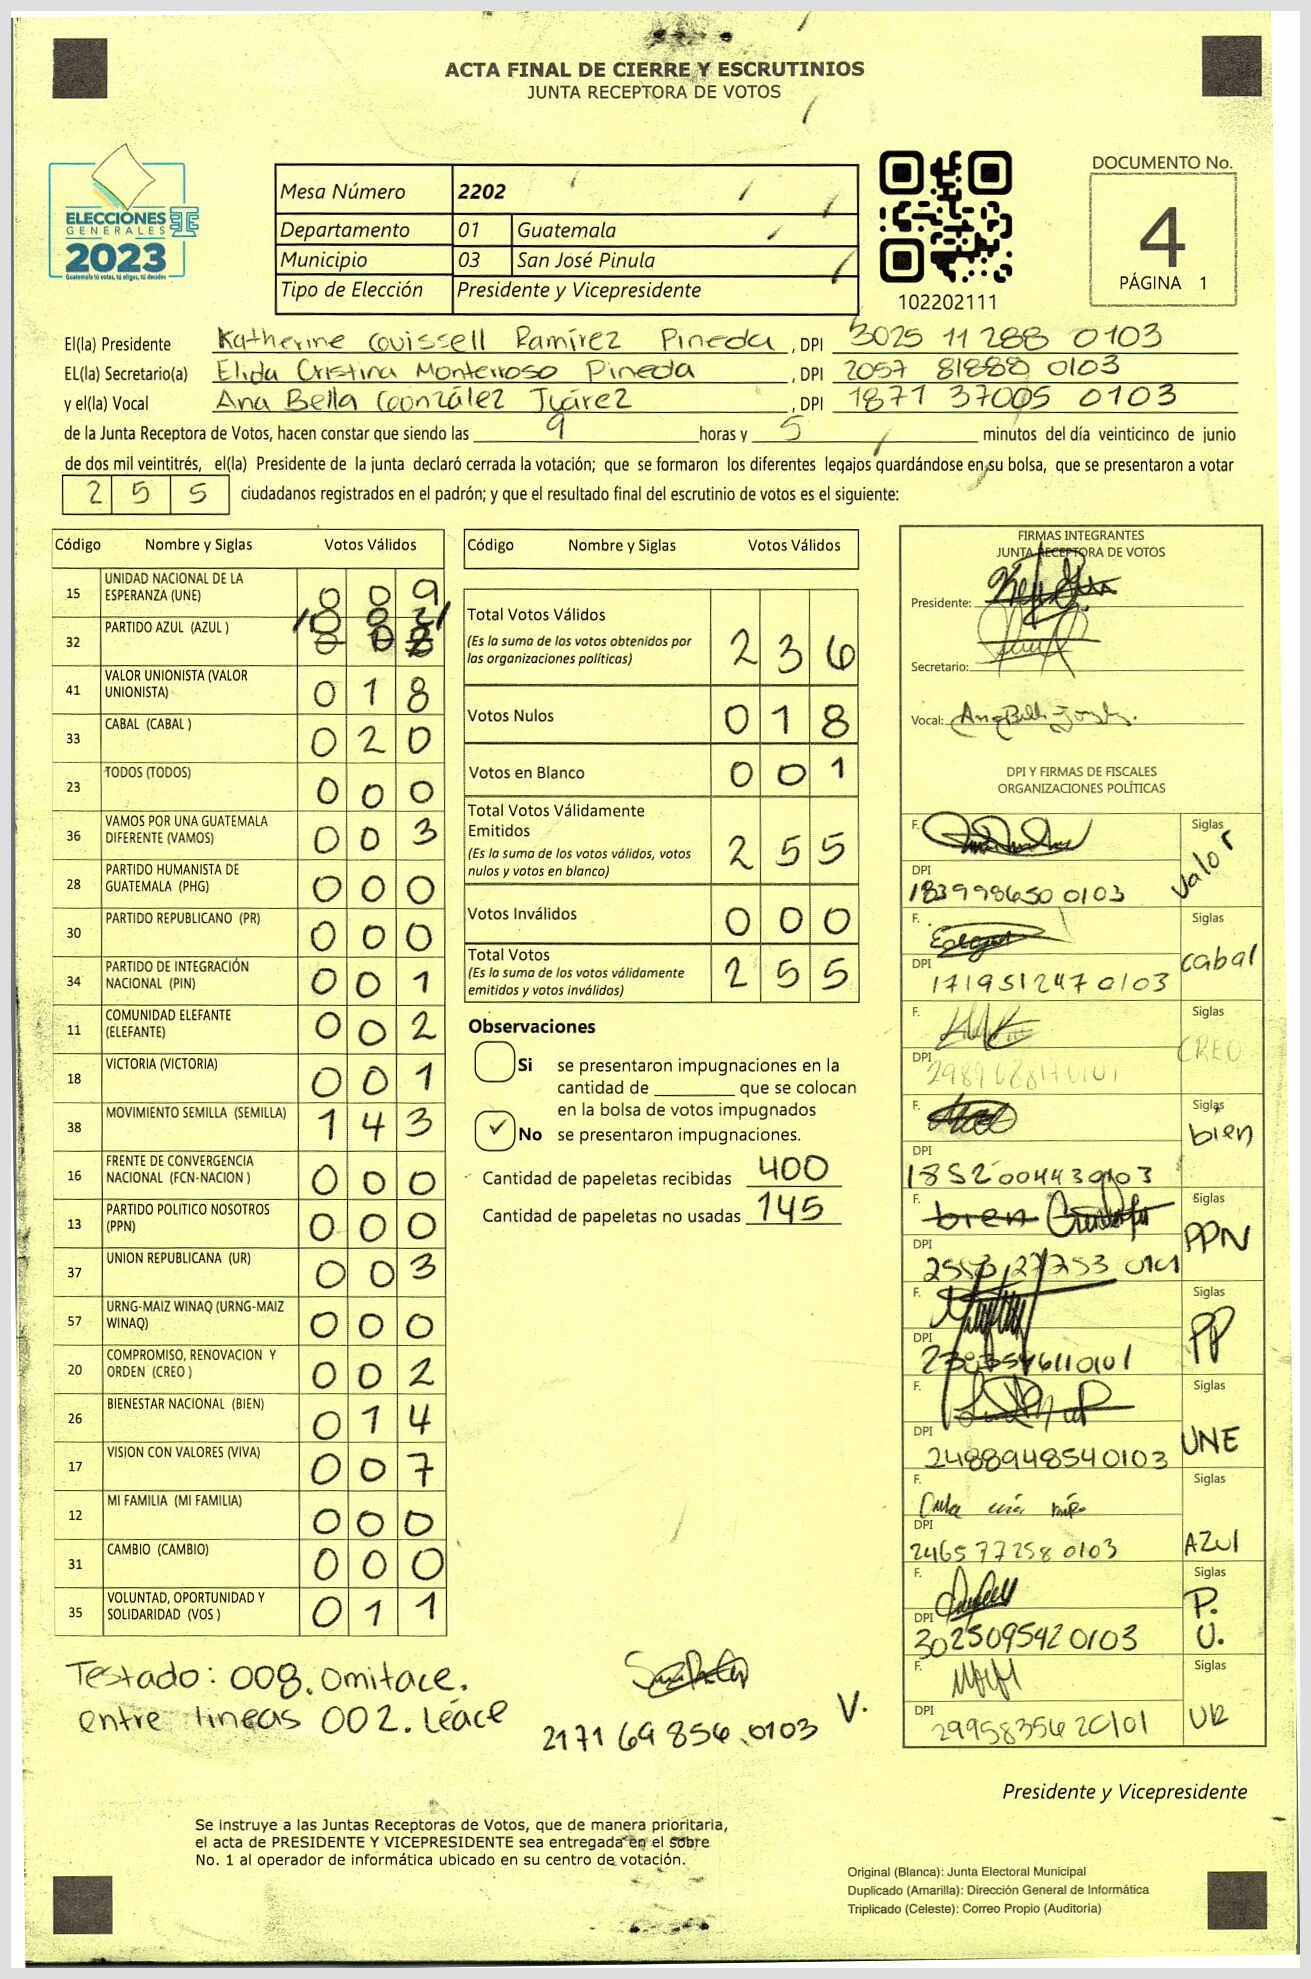 ACTA FINAL DE CIERRE Y ESCRUTINIOS
JUNTA RECEPTORA DE VOTOS
ELECCIONES
GENERALES
2023
Guatemala tú votas, tú eliges, tú decides
Mesa Número 2202
Departamento 01 Guatemala
Municipio 03 San José Pinula
Tipo de Elección Presidente y Vicepresidente
102202111
DOCUMENTO No.
4
PÁGINA 1
El(la) Presidente Katherine Couissell Ramírez Pineda, DPI 3025 11 288 0103
EL(la) Secretario(a) Elida Cristina Monterroso Pineda, DPI 2057 81888 0103
y el(la) Vocal Ana Bella González Juárez, DPI 1871 37005 0103
de la Junta Receptora de Votos, hacen constar que siendo las 9 horas y 5 minutos del día veinticinco de junio
de dos mil veintitrés, el(la) Presidente de la junta declaró cerrada la votación; que se formaron los diferentes legajos guardándose en su bolsa, que se presentaron a votar
2 5 5 ciudadanos registrados en el padrón; y que el resultado final del escrutinio de votos es el siguiente:
Código Nombre y Siglas Votos Válidos
15 UNIDAD NACIONAL DE LA ESPERANZA (UNE) 0 0 9
32 PARTIDO AZUL (AZUL ) 0 0 2
0 0 8
41 VALOR UNIONISTA (VALOR UNIONISTA) 0 1 8
33 CABAL (CABAL ) 0 2 0
23 TODOS (TODOS) 0 0 0
36 VAMOS POR UNA GUATEMALA DIFERENTE (VAMOS) 0 0 3
28 PARTIDO HUMANISTA DE GUATEMALA (PHG) 0 0 0
30 PARTIDO REPUBLICANO (PR) 0 0 0
34 PARTIDO DE INTEGRACIÓN NACIONAL (PIN) 0 0 1
11 COMUNIDAD ELEFANTE (ELEFANTE) 0 0 2
18 VICTORIA (VICTORIA) 0 0 1
38 MOVIMIENTO SEMILLA (SEMILLA) 1 4 3
16 FRENTE DE CONVERGENCIA NACIONAL (FCN-NACION ) 0 0 0
13 PARTIDO POLITICO NOSOTROS (PPN) 0 0 0
37 UNION REPUBLICANA (UR) 0 0 3
57 URNG-MAIZ WINAQ (URNG-MAIZ WINAQ) 0 0 0
20 COMPROMISO, RENOVACION Y ORDEN (CREO ) 0 0 2
26 BIENESTAR NACIONAL (BIEN) 0 1 4
17 VISION CON VALORES (VIVA) 0 0 7
12 MI FAMILIA (MI FAMILIA) 0 0 0
31 CAMBIO (CAMBIO) 0 0 0
35 VOLUNTAD, OPORTUNIDAD Y SOLIDARIDAD (VOS ) 0 1 1
Testado: 008. Omitace.
entre lineas 002. Léace
Código Nombre y Siglas Votos Válidos
Total Votos Válidos 2 3 6
(Es la suma de los votos obtenidos por
las organizaciones políticas)
Votos Nulos 0 1 8
Votos en Blanco 0 0 1
Total Votos Válidamente
Emitidos 2 5 5
(Es la suma de los votos válidos, votos
nulos y votos en blanco)
Votos Inválidos 0 0 0
Total Votos 2 5 5
(Es la suma de los votos válidamente
emitidos y votos inválidos)
Observaciones
Si se presentaron impugnaciones en la
cantidad de ________ que se colocan
en la bolsa de votos impugnados
✓ No se presentaron impugnaciones.
Cantidad de papeletas recibidas 400
Cantidad de papeletas no usadas 145
2171 69 856 0103 V.
FIRMAS INTEGRANTES
JUNTA RECEPTORA DE VOTOS
Presidente:
Secretario:
Vocal:
DPI Y FIRMAS DE FISCALES
ORGANIZACIONES POLÍTICAS
F. Siglas Valor
DPI 183998650 0103
F. Siglas cabal
DPI 171951247 0103
F. Siglas CREO
DPI
F. Siglas bien
DPI 1852004430103
F. bien Siglas PPN
DPI
F. Siglas PP
DPI
F. Siglas UNE
DPI 2488948540103
F. Siglas AZUL
DPI 2465 77258 0103
F. Siglas P.U.
DPI 3025095420103
F. Siglas UR
DPI
Presidente y Vicepresidente
Se instruye a las Juntas Receptoras de Votos, que de manera prioritaria,
el acta de PRESIDENTE Y VICEPRESIDENTE sea entregada en el sobre
No. 1 al operador de informática ubicado en su centro de votación.
Original (Blanca): Junta Electoral Municipal
Duplicado (Amarilla): Dirección General de Informática
Triplicado (Celeste): Correo Propio (Auditoria)